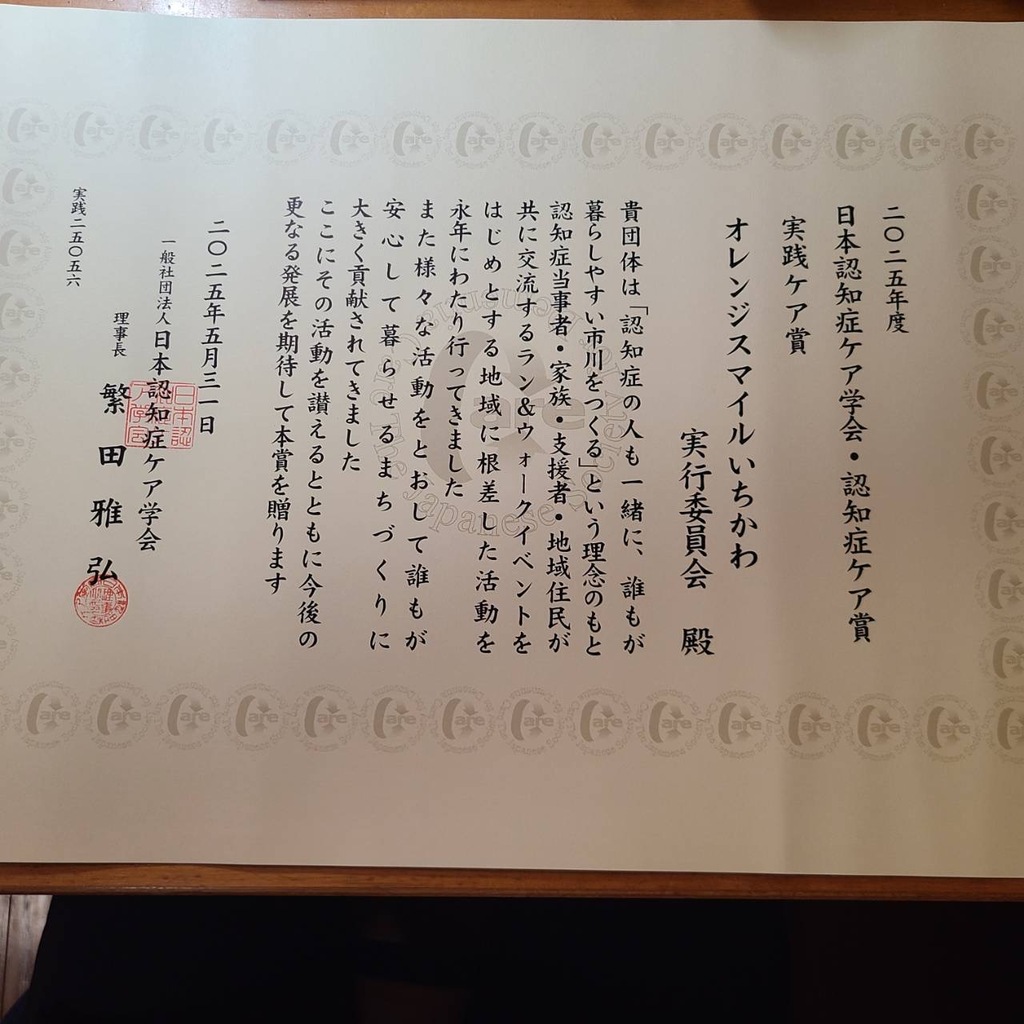 二〇二五年度
日本認知症ケア学会・認知症ケア賞
実践ケア賞
オレンジスマイルいちかわ
実行委員会 殿
貴団体は「認知症の人も一緒に、誰もが
暮らしやすい市川をつくる」という理念のもと
認知症当事者・家族・支援者・地域住民が
共に交流するラン&ウォークイベントを
はじめとする地域に根差した活動を
永年にわたり行ってきました
また様々な活動をとおして誰もが
安心して暮らせるまちづくりに
大きく貢献されてきました
ここにその活動を讃えるとともに今後の
更なる発展を期待して本賞を贈ります
二〇二五年五月三一日
一般社団法人 日本認知症ケア学会
理事長 繁田雅弘
実践二五〇五六